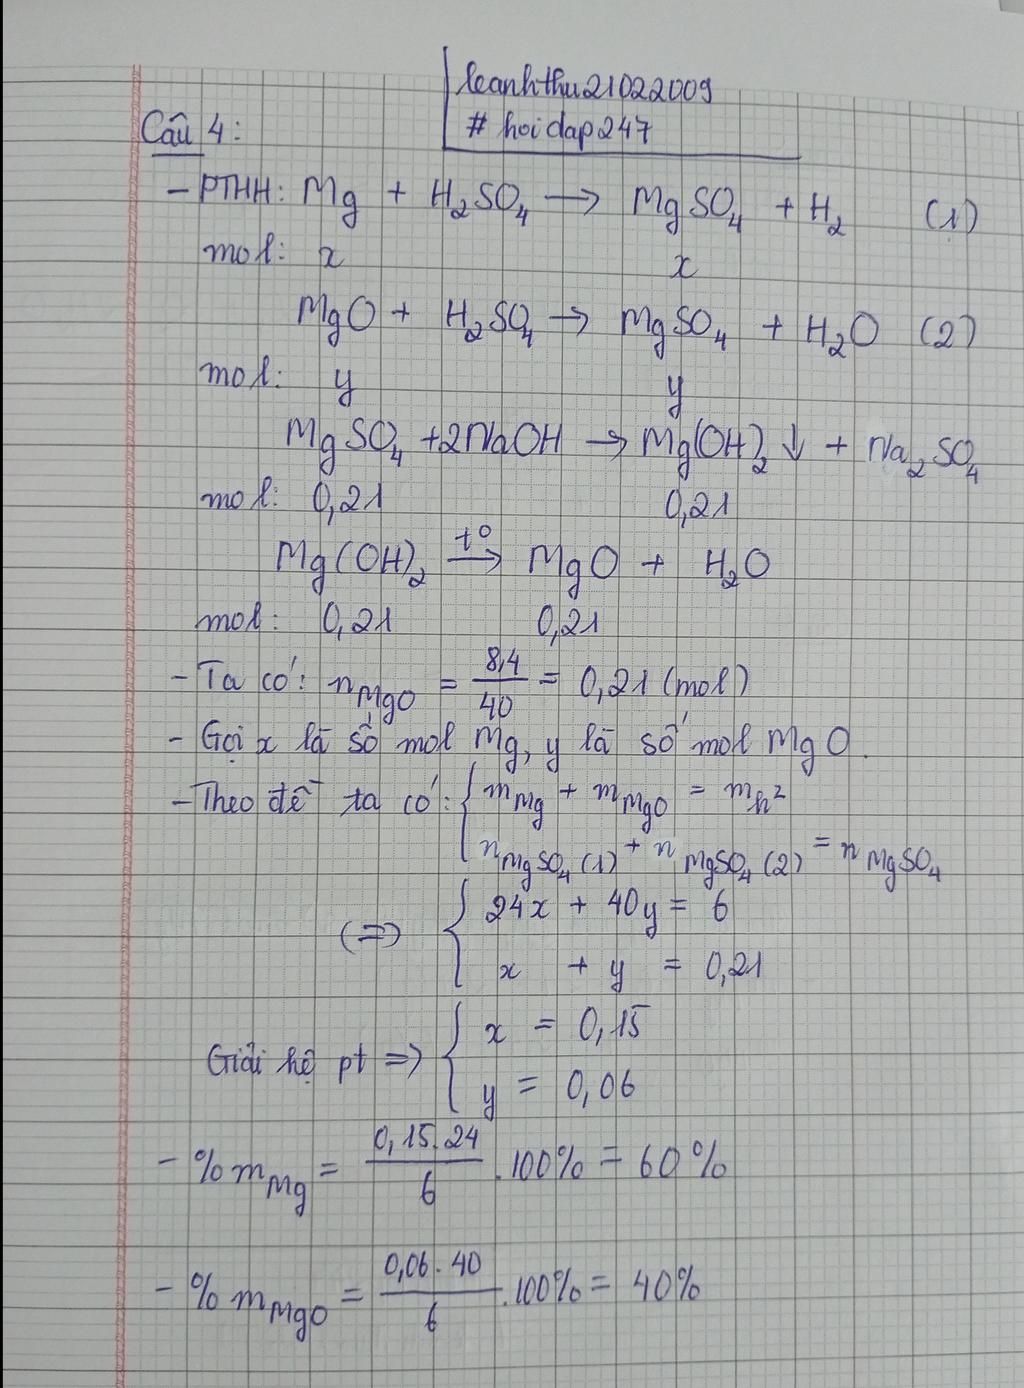 leanhthu21022009
# hoidap247
Câu 4:
- PTHH: Mg + H₂SO₄ → MgSO₄ + H₂ (1)
mol: x x
MgO + H₂SO₄ → MgSO₄ + H₂O (2)
mol: y y
MgSO₄ + 2NaOH → Mg(OH)₂ ↓ + Na₂SO₄
mol: 0,21 0,21
Mg(OH)₂ →(t°) MgO + H₂O
mol: 0,21 0,21
- Ta có: n_MgO = 8,4/40 = 0,21 (mol)
- Gọi x là số mol Mg, y là số mol MgO.
- Theo đề ta có: { m_Mg + m_MgO = m_h²
n_MgSO₄(1) + n_MgSO₄(2) = n_MgSO₄
(=>) { 24x + 40y = 6
x + y = 0,21
Giải hệ pt => { x = 0,15
y = 0,06
- % m_Mg = 0,15.24/6 . 100% = 60%
- % m_MgO = 0,06.40/6 . 100% = 40%